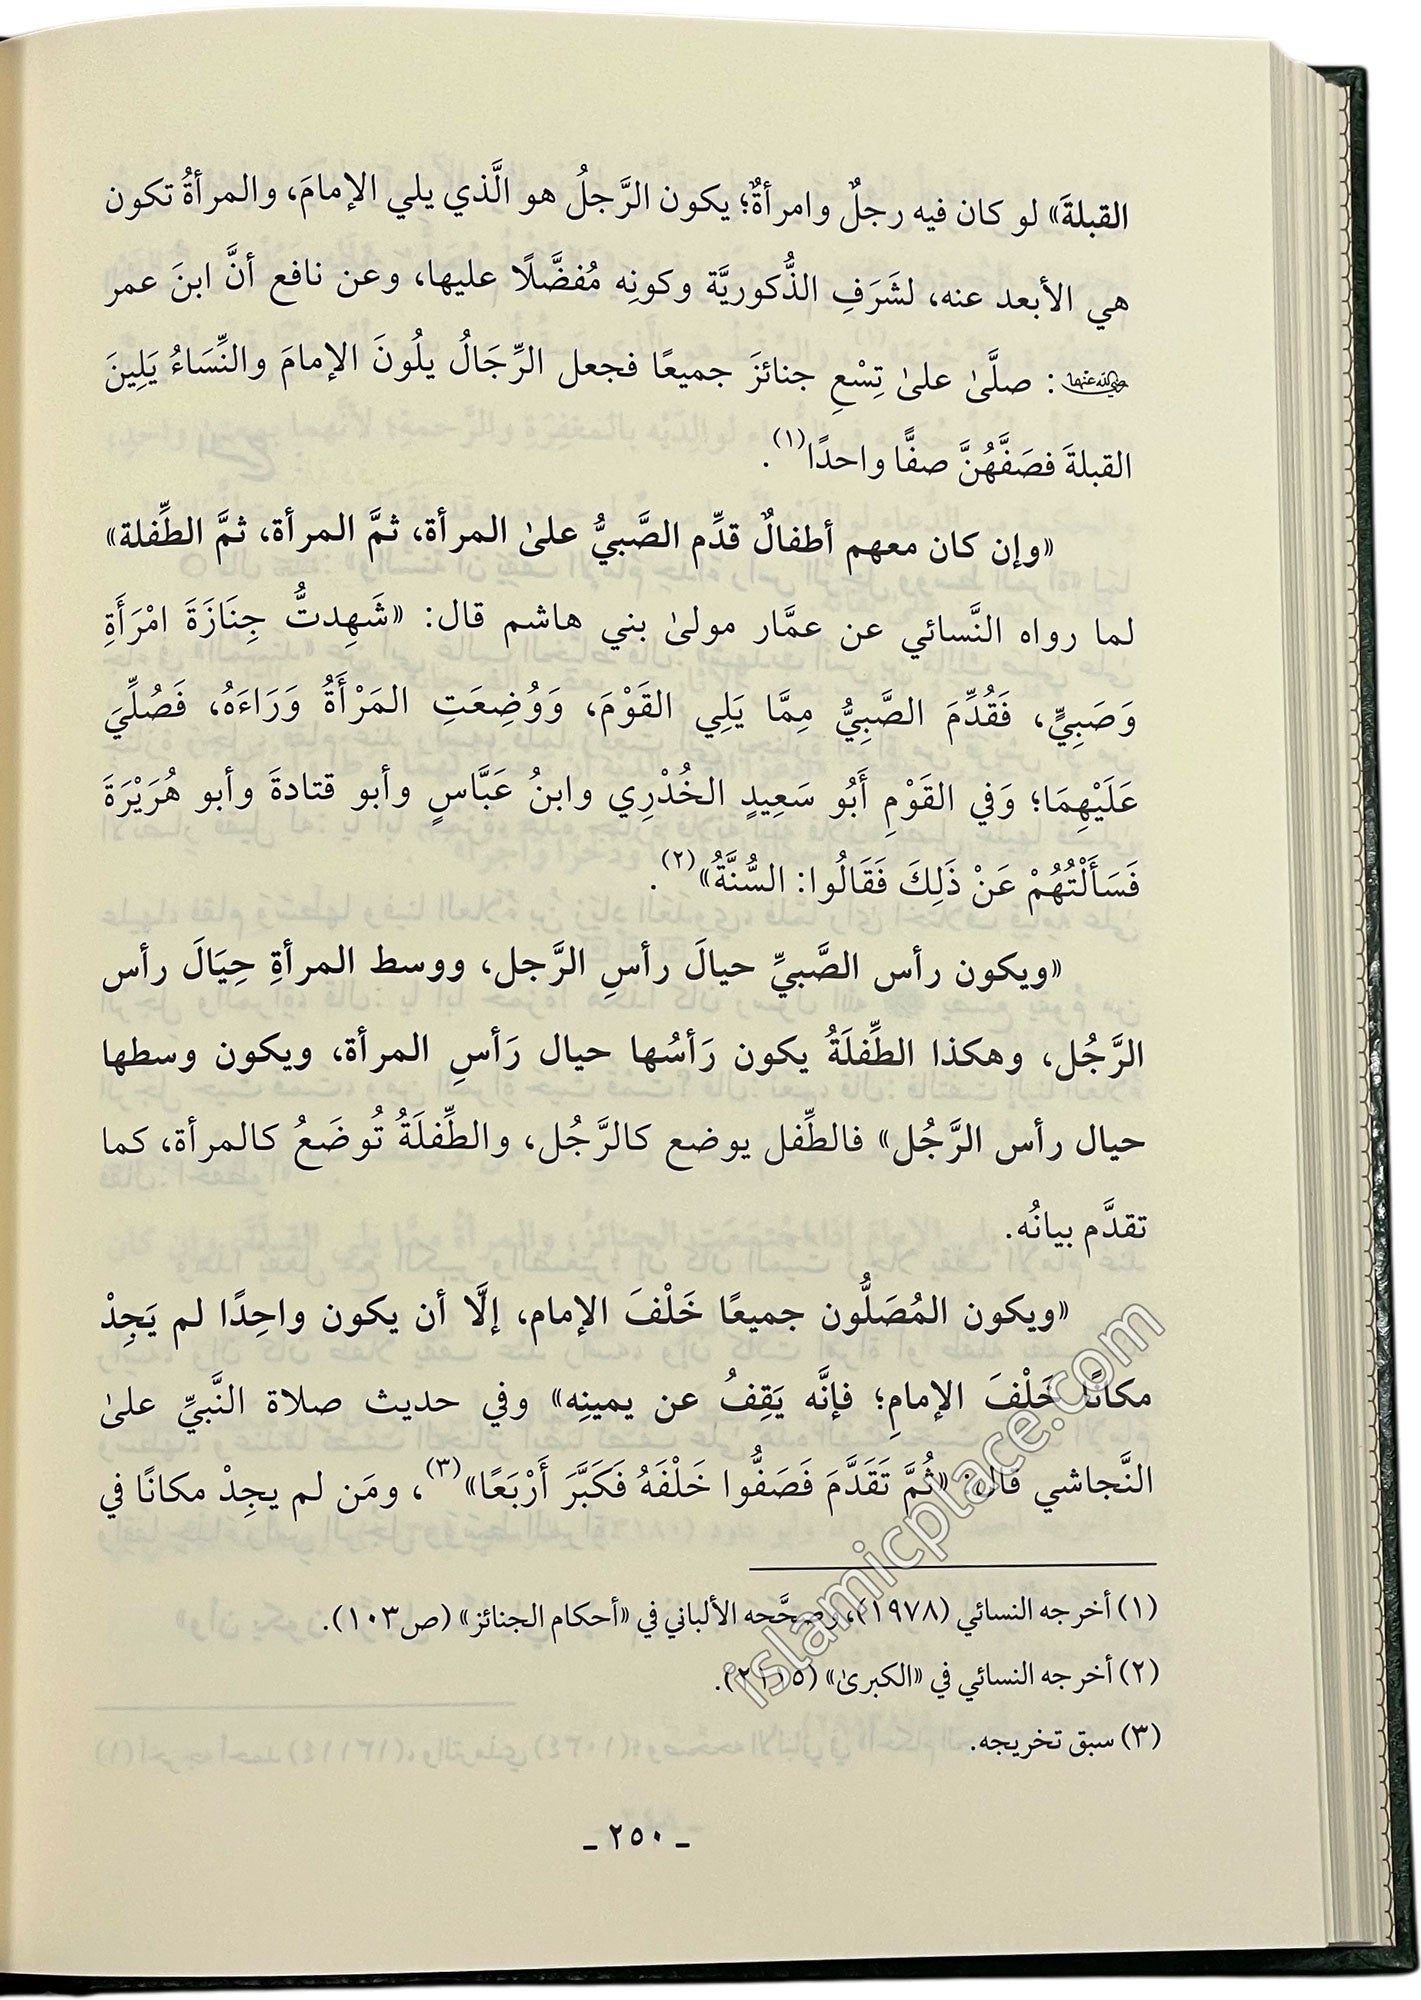 القبلةَ» لو كان فيه رجلٌ وامرأةٌ؛ يكون الرَّجلُ هو الَّذي يلي الإمامَ، والمرأةُ تكون
هي الأبعد عنه، لشَرَفِ الذُّكوريَّة وكونِه مُفضَّلًا عليها، وعن نافع أنَّ ابنَ عمر
رضي الله عنهما: صلَّىٰ علىٰ تِسْعِ جنائزَ جميعًا فجعل الرِّجَالُ يلُونَ الإمامَ والنِّسَاءُ يَلِينَ
القبلةَ فصَفَّهُنَّ صفًّا واحدًا(١).
«وإن كان معهم أطفالٌ قدِّم الصَّبيُّ علىٰ المرأة، ثمَّ المرأة، ثمَّ الطِّفلة»
لما رواه النَّسائي عن عمَّار مولىٰ بني هاشم قال: «شَهِدتُّ جِنَازَةَ امْرَأَةِ
وَصَبِيٍّ، فَقُدِّمَ الصَّبِيُّ مِمَّا يَلِي القَوْمَ، وَوُضِعَتِ المَرْأَةُ وَرَاءَهُ، فَصُلِّيَ
عَلَيْهِمَا؛ وَفي القَوْمِ أَبُو سَعِيدٍ الخُدْرِي وابنُ عَبَّاسٍ وأبو قتادةَ وأبو هُرَيْرَةَ
فَسَأَلْتُهُمْ عَنْ ذَلِكَ فَقَالُوا: السُّنَّةُ»(٢).
«ويكون رأس الصَّبيِّ حيالَ رأسِ الرَّجل، ووسط المرأةِ حِيَالَ رأس
الرَّجُل، وهكذا الطِّفلَةُ يكون رَأسُها حيال رَأسِ المرأة، ويكون وسطها
حيال رأس الرَّجُل» فالطِّفل يوضع كالرَّجُل، والطِّفلَةُ تُوضَعُ كالمرأة، كما
تقدَّم بيانُه.
«ويكون المُصَلُّون جميعًا خَلْفَ الإمام، إلَّا أن يكون واحِدًا لم يَجِدْ
مكانًا خَلْفَ الإمامِ؛ فإنَّه يَقِفُ عن يمينِه» وفي حديث صلاة النَّبيِّ علىٰ
النَّجاشي قال: «ثُمَّ تَقَدَّمَ فَصَفُّوا خَلْفَهُ فَكَبَّرَ أَرْبَعًا»(٣)، ومَن لم يجِدْ مكانًا في
(١) أخرجه النسائي (١٩٧٨)، وصحَّحه الألباني في «أحكام الجنائز» (ص١٠٣).
(٢) أخرجه النسائي في «الكبرىٰ» (٢١١٥).
(٣) سبق تخريجه.
ـ ٢٥٠ ـ
islamicplace.com